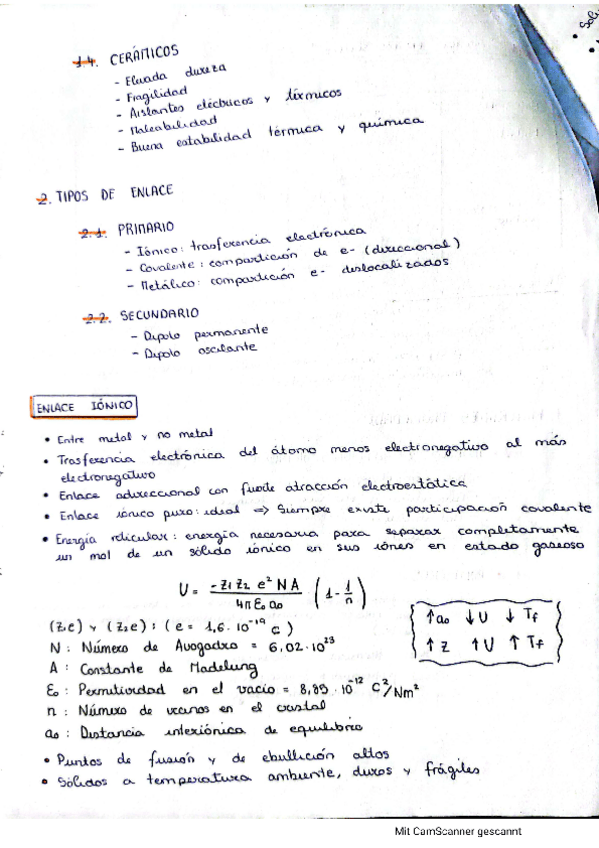 1.4. CERÁMICOS
- Elevada dureza
- Fragilidad
- Aislantes eléctricos y térmicos
- Maleabilidad
- Buena estabilidad térmica y química
2. TIPOS DE ENLACE
2.1. PRIMARIO
- Iónico: trasferencia electrónica
- Covalente: compartición de e- (direccional)
- Metálico: compartición e- deslocalizados
2.2. SECUNDARIO
- Dipolo permanente
- Dipolo oscilante
ENLACE IÓNICO
• Entre metal y no metal
• Trasferencia electrónica del átomo menos electronegativo al más
electronegativo
• Enlace adireccional con fuerte atracción electroestática
• Enlace iónico puro: ideal => Siempre existe participación covalente
• Energía reticular: energía necesaria para separar completamente
un mol de un sólido iónico en sus iónes en estado gaseoso
U = -Z1 Z2 e² N A / 4π Eo ao (1 - 1/n)
↑ao ↓U ↓Tf
↑Z ↑U ↑Tf
(Z1e) y (Z2e): (e = 1,6·10⁻¹⁹ C)
N: Número de Avogadro = 6,02·10²³
A: Constante de Madelung
Eo: Permitividad en el vacío = 8,85·10⁻¹² C²/Nm²
n: Número de vecinos en el cristal
ao: Distancia interiónica de equilibrio
• Puntos de fusión y de ebullición altos
• Sólidos a temperatura ambiente, duros y frágiles
Mit CamScanner gescannt